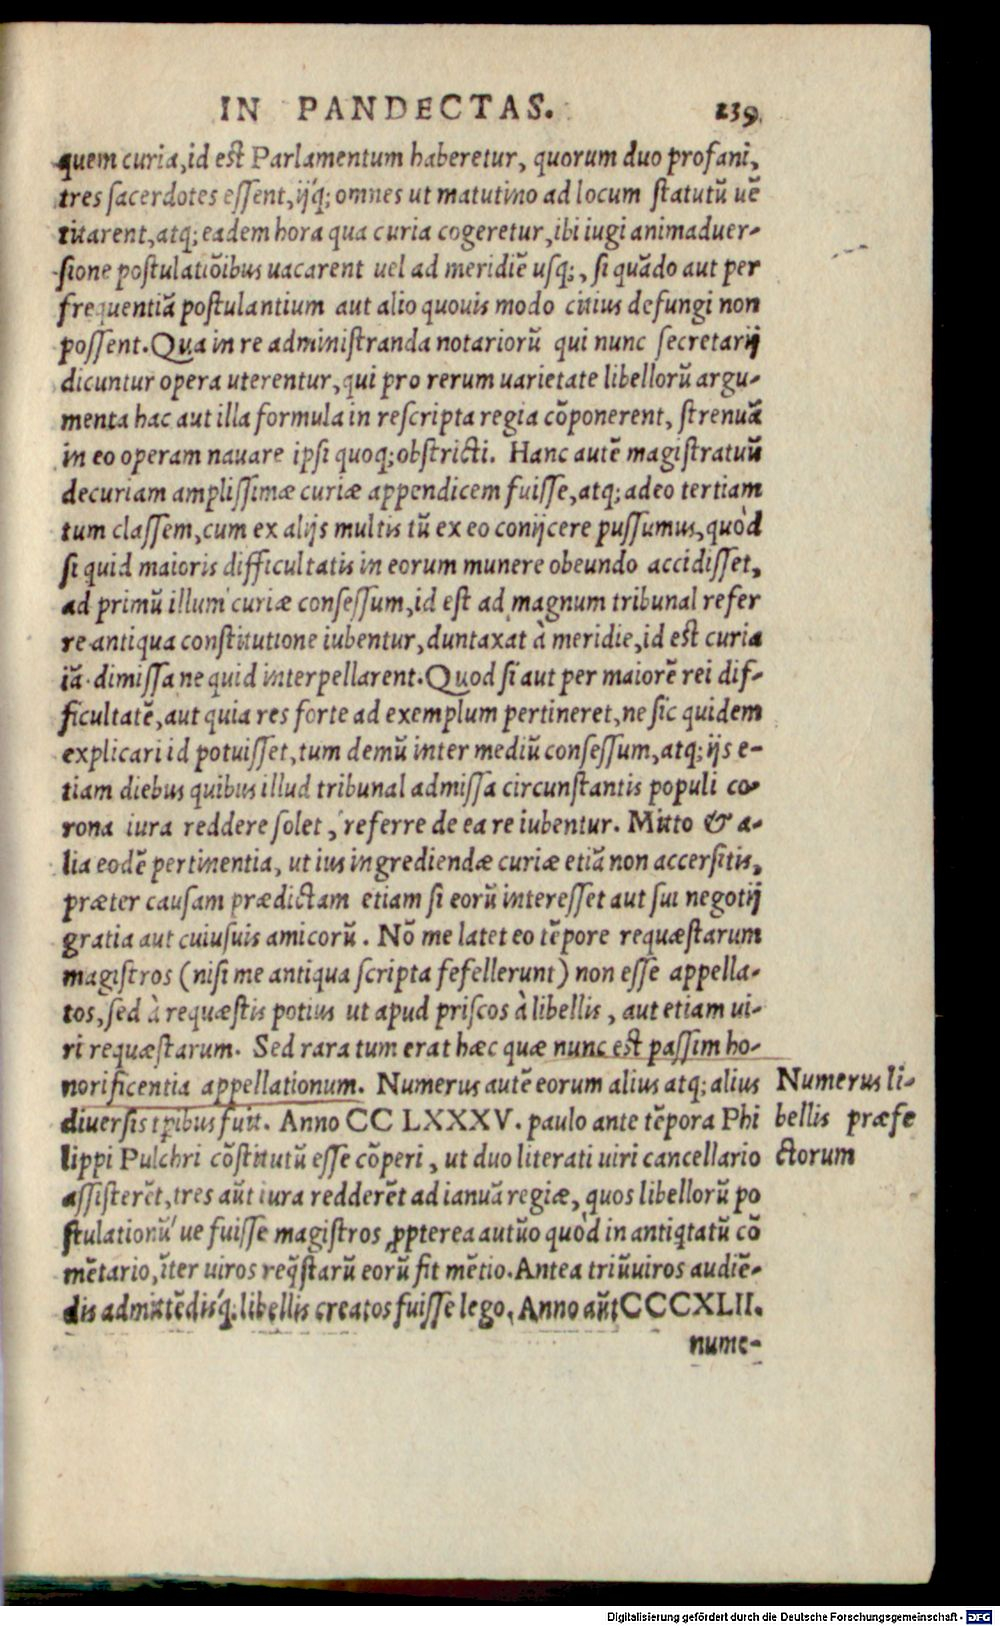 IN PANDECTAS. 239
quem curia, id est Parlamentum haberetur, quorum duo profani,
tres sacerdotes essent, ijq́; omnes ut matutino ad locum statutũ uẽ
titarent, atq; eadem hora qua curia cogeretur, ibi iugi animaduer-
sione postulatiõibus uacarent uel ad meridiẽ usq;, si quãdo aut per
frequentiã postulantium aut alio quouis modo citius defungi non
possent. Qua in re administranda notariorũ qui nunc secretarij
dicuntur opera uterentur, qui pro rerum uarietate libellorũ argu-
menta hac aut illa formula in rescripta regia cõponerent, strenuã
in eo operam nauare ipsi quoq; obstricti. Hanc autẽ magistratuũ
decuriam amplissimæ curiæ appendicem fuisse, atq; adeo tertiam
tum classem, cum ex alijs multis tũ ex eo conijcere pussumus, quòd
si quid maioris difficultatis in eorum munere obeundo accidisset,
ad primũ illum curiæ consessum, id est ad magnum tribunal refer
re antiqua constitutione iubentur, duntaxat à meridie, id est curia
iã dimissa ne quid interpellarent. Quod si aut per maiorẽ rei dif-
ficultatẽ, aut quia res forte ad exemplum pertineret, ne sic quidem
explicari id potuisset, tum demũ inter mediũ consessum, atq; ijs e-
tiam diebus quibus illud tribunal admissa circunstantis populi co-
rona iura reddere solet, referre de ea re iubentur. Mitto & a-
lia eodẽ pertinentia, ut ius ingrediendæ curiæ etiã non accersitis,
præter causam prædictam etiam si eorũ interesset aut sui negotij
gratia aut cuiusuis amicorũ. Nõ me latet eo tẽpore requæstarum
magistros (nisi me antiqua scripta fefellerunt) non esse appella-
tos, sed à requæstis potius ut apud priscos à libellis, aut etiam ui-
ri requæstarum. Sed rara tum erat hæc quæ nunc est passim ho-
norificentia appellationum. Numerus autẽ eorum alius atq; alius
diuersis tp̃ibus fuit. Anno CC LXXXV. paulo ante tẽpora Phi
lippi Pulchri cõstitutũ esse cõperi, ut duo literati uiri cancellario
assisterẽt, tres aũt iura redderẽt ad ianuã regiæ, quos libellorũ po
stulationũ ue fuisse magistros ꝓpterea autũo quòd in antiq̃tatũ cõ
mẽtario, ĩter uiros req̃starũ eorũ fit mẽtio. Antea triũuiros audiẽ-
dis admittẽdisq́; libellis creatos fuisse lego. Anno aũt CCCXLII.
nume-
Numerus li-
bellis præfe
ctorum
Digitalisierung gefördert durch die Deutsche Forschungsgemeinschaft - DFG